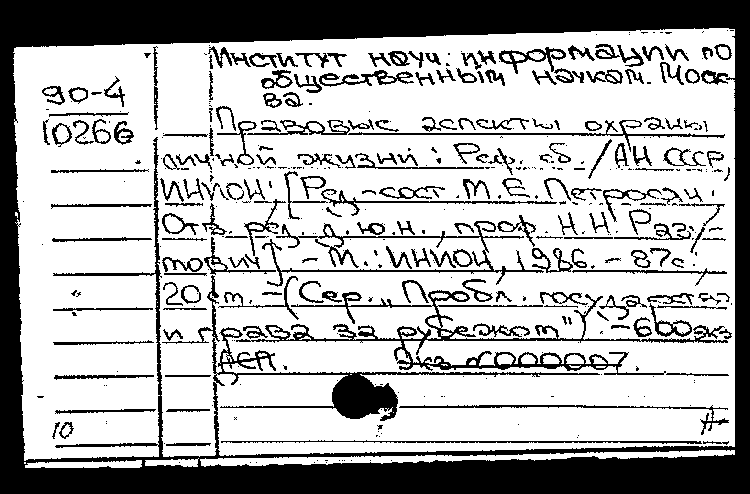 Институт науч. информации по
общественным наукам. Моск-
ва.
90-4
10266
Правовые аспекты охраны
личной жизни: Реф. сб. / АН СССР,
ИНИОН; [Ред.-сост. М.Е. Петросян;
Отв. ред. д.ю.н., проф. Н.Н. Раз-
мович]. - М.: ИНИОН, 1986. - 87с.;
20 см. - (Сер. „Пробл. государства
и права за рубежом"). - 600экз
ДСП. Экз. N000007.
10